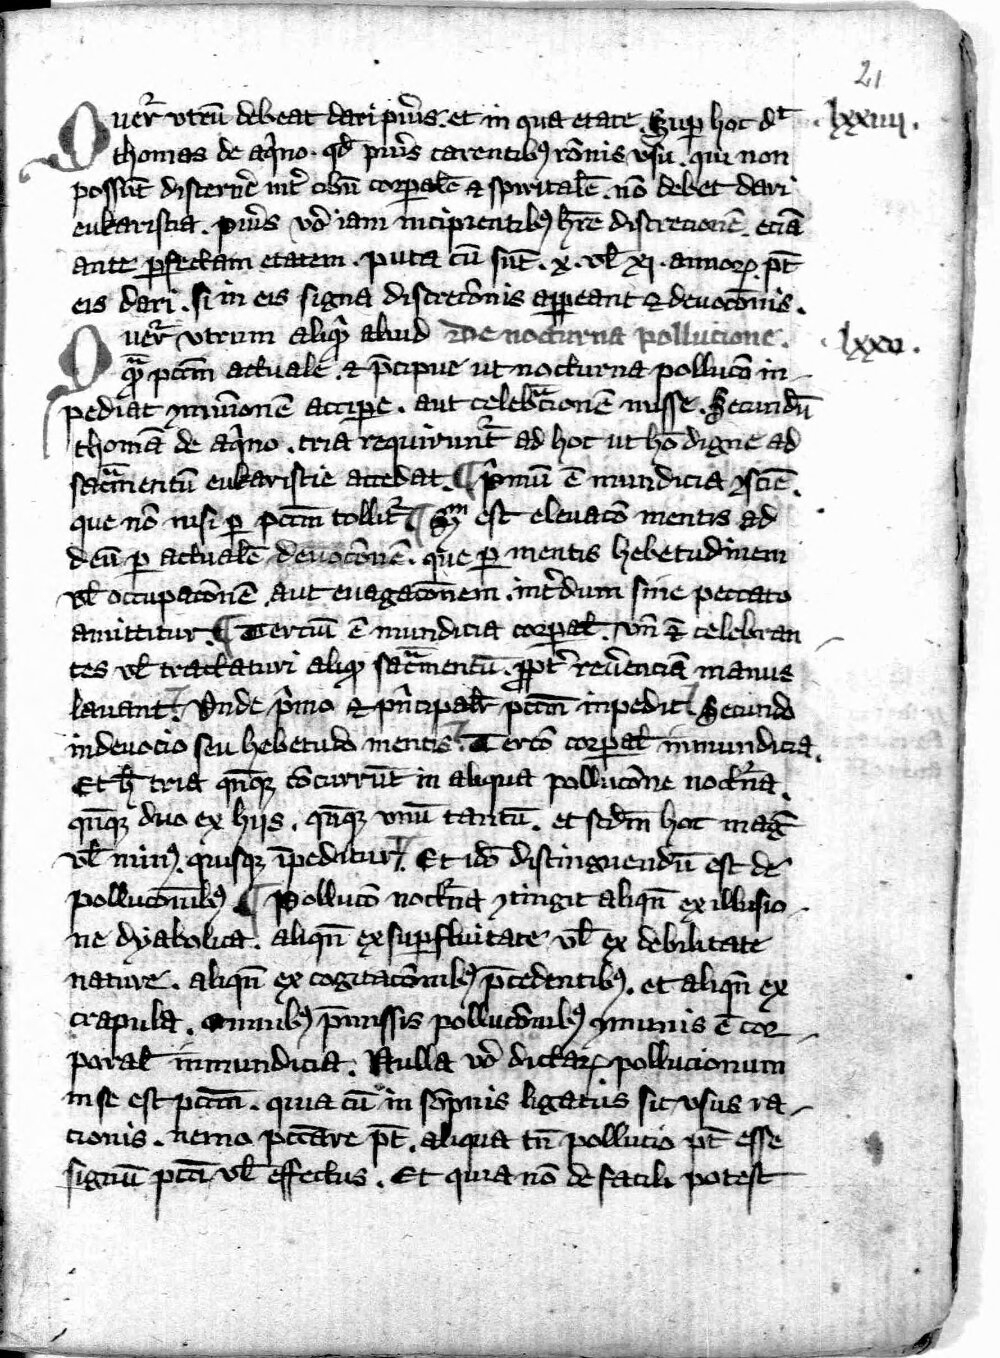 21
Querͬ vtrū debeat dari pueris. et in qua etate. Suꝑ hoc dͭ · lxxiiii ·
thomas de aqͥno · qd̛ pueris carentibꝫ rōnis vsu · qui non
possūt discernͤe int̛ cibū corꝑalē ⁊ spiritalē · nō debet dari
eukaristia . pueris vơ iam incipientibꝫ hr̄e discrecionē . eciā
ante ꝑfectam etatem . puta cū sūt · x · vl̄ xi · annoꝝ . pt̄
eis dari . si in eis signa discrecōnis appeant ⁊ deuocōnis .
Querͬ vtrum aliqͥ aliud De nocturna pollucione . · lxxv ·
qͣm pctm̄ actuale . ⁊ p̄cipue ut nocturna pollucō in-
pediat ꝯmuniōnē acciꝑe . aut celebͣcionē misse . Secundū
thomā de aqͥno . tria requirunt̛ ad hoc ut hō digne ad
sacͣmentū eukaristie accedat . ¶ pͥmū ē mundicia ꝯsciē .
que nō nisi ꝑ pctm̄ tollit̛ . ¶ Sͫ est eleuacō mentis ad
deū ꝑ actualē deuocōnē . que ꝑ mentis hebetudinem
vl̄ occupacōnē . aut euagacōnem . int̛dum sine peccato
amittitur . ¶ Terciū ē mundicia corꝑal̄ . vn̄ ⁊ celebran
tes vl̄ tractaturi aliqͥ sacͣmentū . ꝓpt̛ reuͤenciā manus
lauant . Vnde pͥmo ⁊ pͥncipalr̄ pctm̄ inpedit . Secundo
indeuocio seu hebetudo mentis . Tercō corꝑal̄ inmundicia .
Et h̄ tria qn̄qꝫ cōcurrūt in aliqua pollucōne noct̛na .
qn̄qꝫ duo ex hiis . qn̄qꝫ vnū tantū . et scdm̄ hoc maḡ
vl̄ minꝰ . quisqꝫ īpeditur . Et iō distinguendū est de
pollucōnibꝫ ¶ Pollucō noct̛na ꝯtingit aliqn̄ ex illusio-
ne dyabolica . aliqn̄ ex suꝑfluitate vl̄ ex debilitate
nature . aliqn̄ ex cogitacōnibꝫ p̄cedentibꝫ . et aliqn̄ ex
crapula . omnibꝫ p̄missis pollucōnibꝫ ꝯmunis ē cor-
poral̄ inmundicia . Nulla vơ dictaꝝ pollucionum
in se est pctm̄ . quia cū in sōpnis ligatus sit vsus ra-
cionis . nemo pccare pt̄ . aliqua tn̄ pollucio pt̄ esse
signū pcti vl̄ effectus . Et quia nō de facili potest